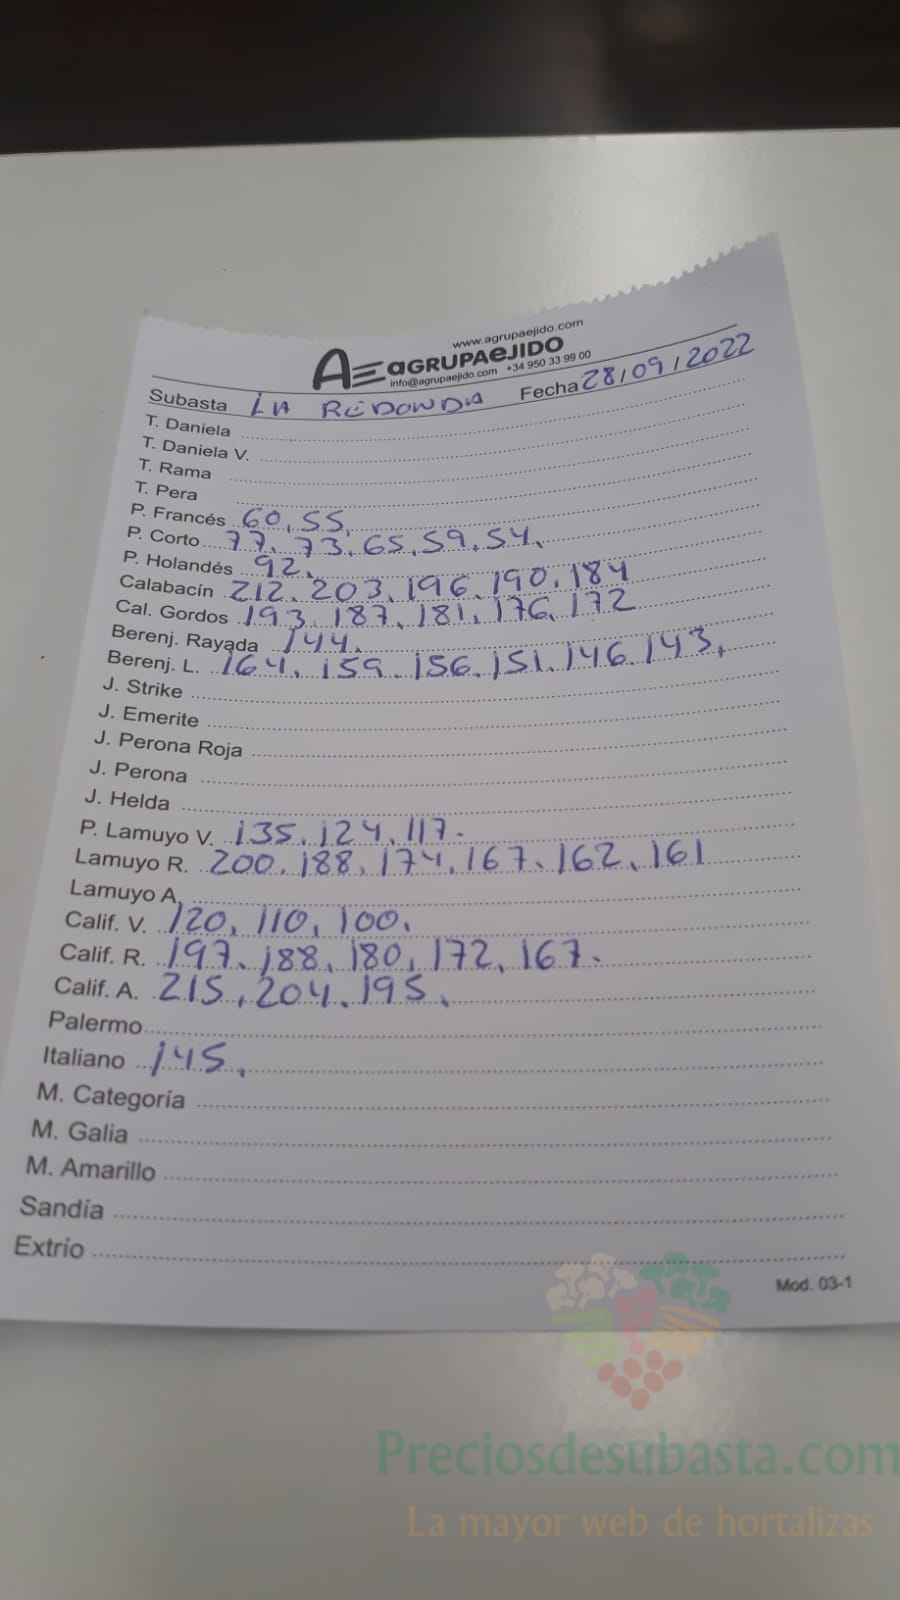 www.agrupaejido.com
AGRUPAEJIDO
info@agrupaejido.com +34 950 33 99 00
Subasta LA REDONDA Fecha 28/09/2022
T. Daniela
T. Daniela V.
T. Rama
T. Pera
P. Francés 60, 55,
P. Corto 77, 73, 65, 59, 54,
P. Holandés 92,
Calabacín 212, 203, 196, 190, 184
Cal. Gordos 193, 187, 181, 176, 172
Berenj. Rayada 144,
Berenj. L. 164, 159, 156, 151, 146, 143,
J. Strike
J. Emerite
J. Perona Roja
J. Perona
J. Helda
P. Lamuyo V. 135, 124, 117.
Lamuyo R. 200, 188, 174, 167, 162, 161
Lamuyo A.
Calif. V. 120, 110, 100,
Calif. R. 197, 188, 180, 172, 167.
Calif. A. 215, 204, 195,
Palermo
Italiano 145,
M. Categoría
M. Galia
M. Amarillo
Sandía
Extrio
Mod. 03-1
Preciosdesubasta.com
La mayor web de hortalizas